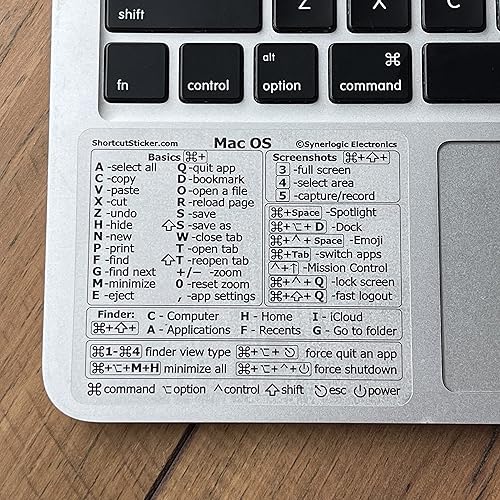 shift Z X C
fn control alt option ⌘ command
ShortcutSticker.com Mac OS ©Synerlogic Electronics
Basics ⌘+
A -select all Q-quit app
C -copy D -bookmark
V -paste O -open a file
X -cut R -reload page
Z -undo S -save
H -hide ⇧S -save as
N -new W -close tab
P -print T -open tab
F -find ⇧T -reopen tab
G -find next +/− -zoom
M-minimize 0 -reset zoom
E -eject , -app settings
Screenshots ⌘+⇧+
3 -full screen
4 -select area
5 -capture/record
⌘+Space -Spotlight
⌘+⌥+ D -Dock
⌘+^+ Space -Emoji
⌘+Tab -switch apps
^+↑ -Mission Control
⌘+^+ Q -lock screen
⌘+⇧+ Q -fast logout
Finder: C - Computer H - Home I - iCloud
⌘+⇧+ A - Applications F - Recents G - Go to folder
⌘1-⌘4 finder view type ⌘+⌥+ ⎋ force quit an app
⌘+⌥+M+H minimize all ⌘+⌥+^+⏻ force shutdown
⌘command ⌥option ^control ⇧shift ⎋esc ⏻power